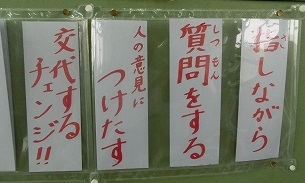 指しながら
質問をする
しつもん
人の意見に
つけたす
交代する
チェンジ!!